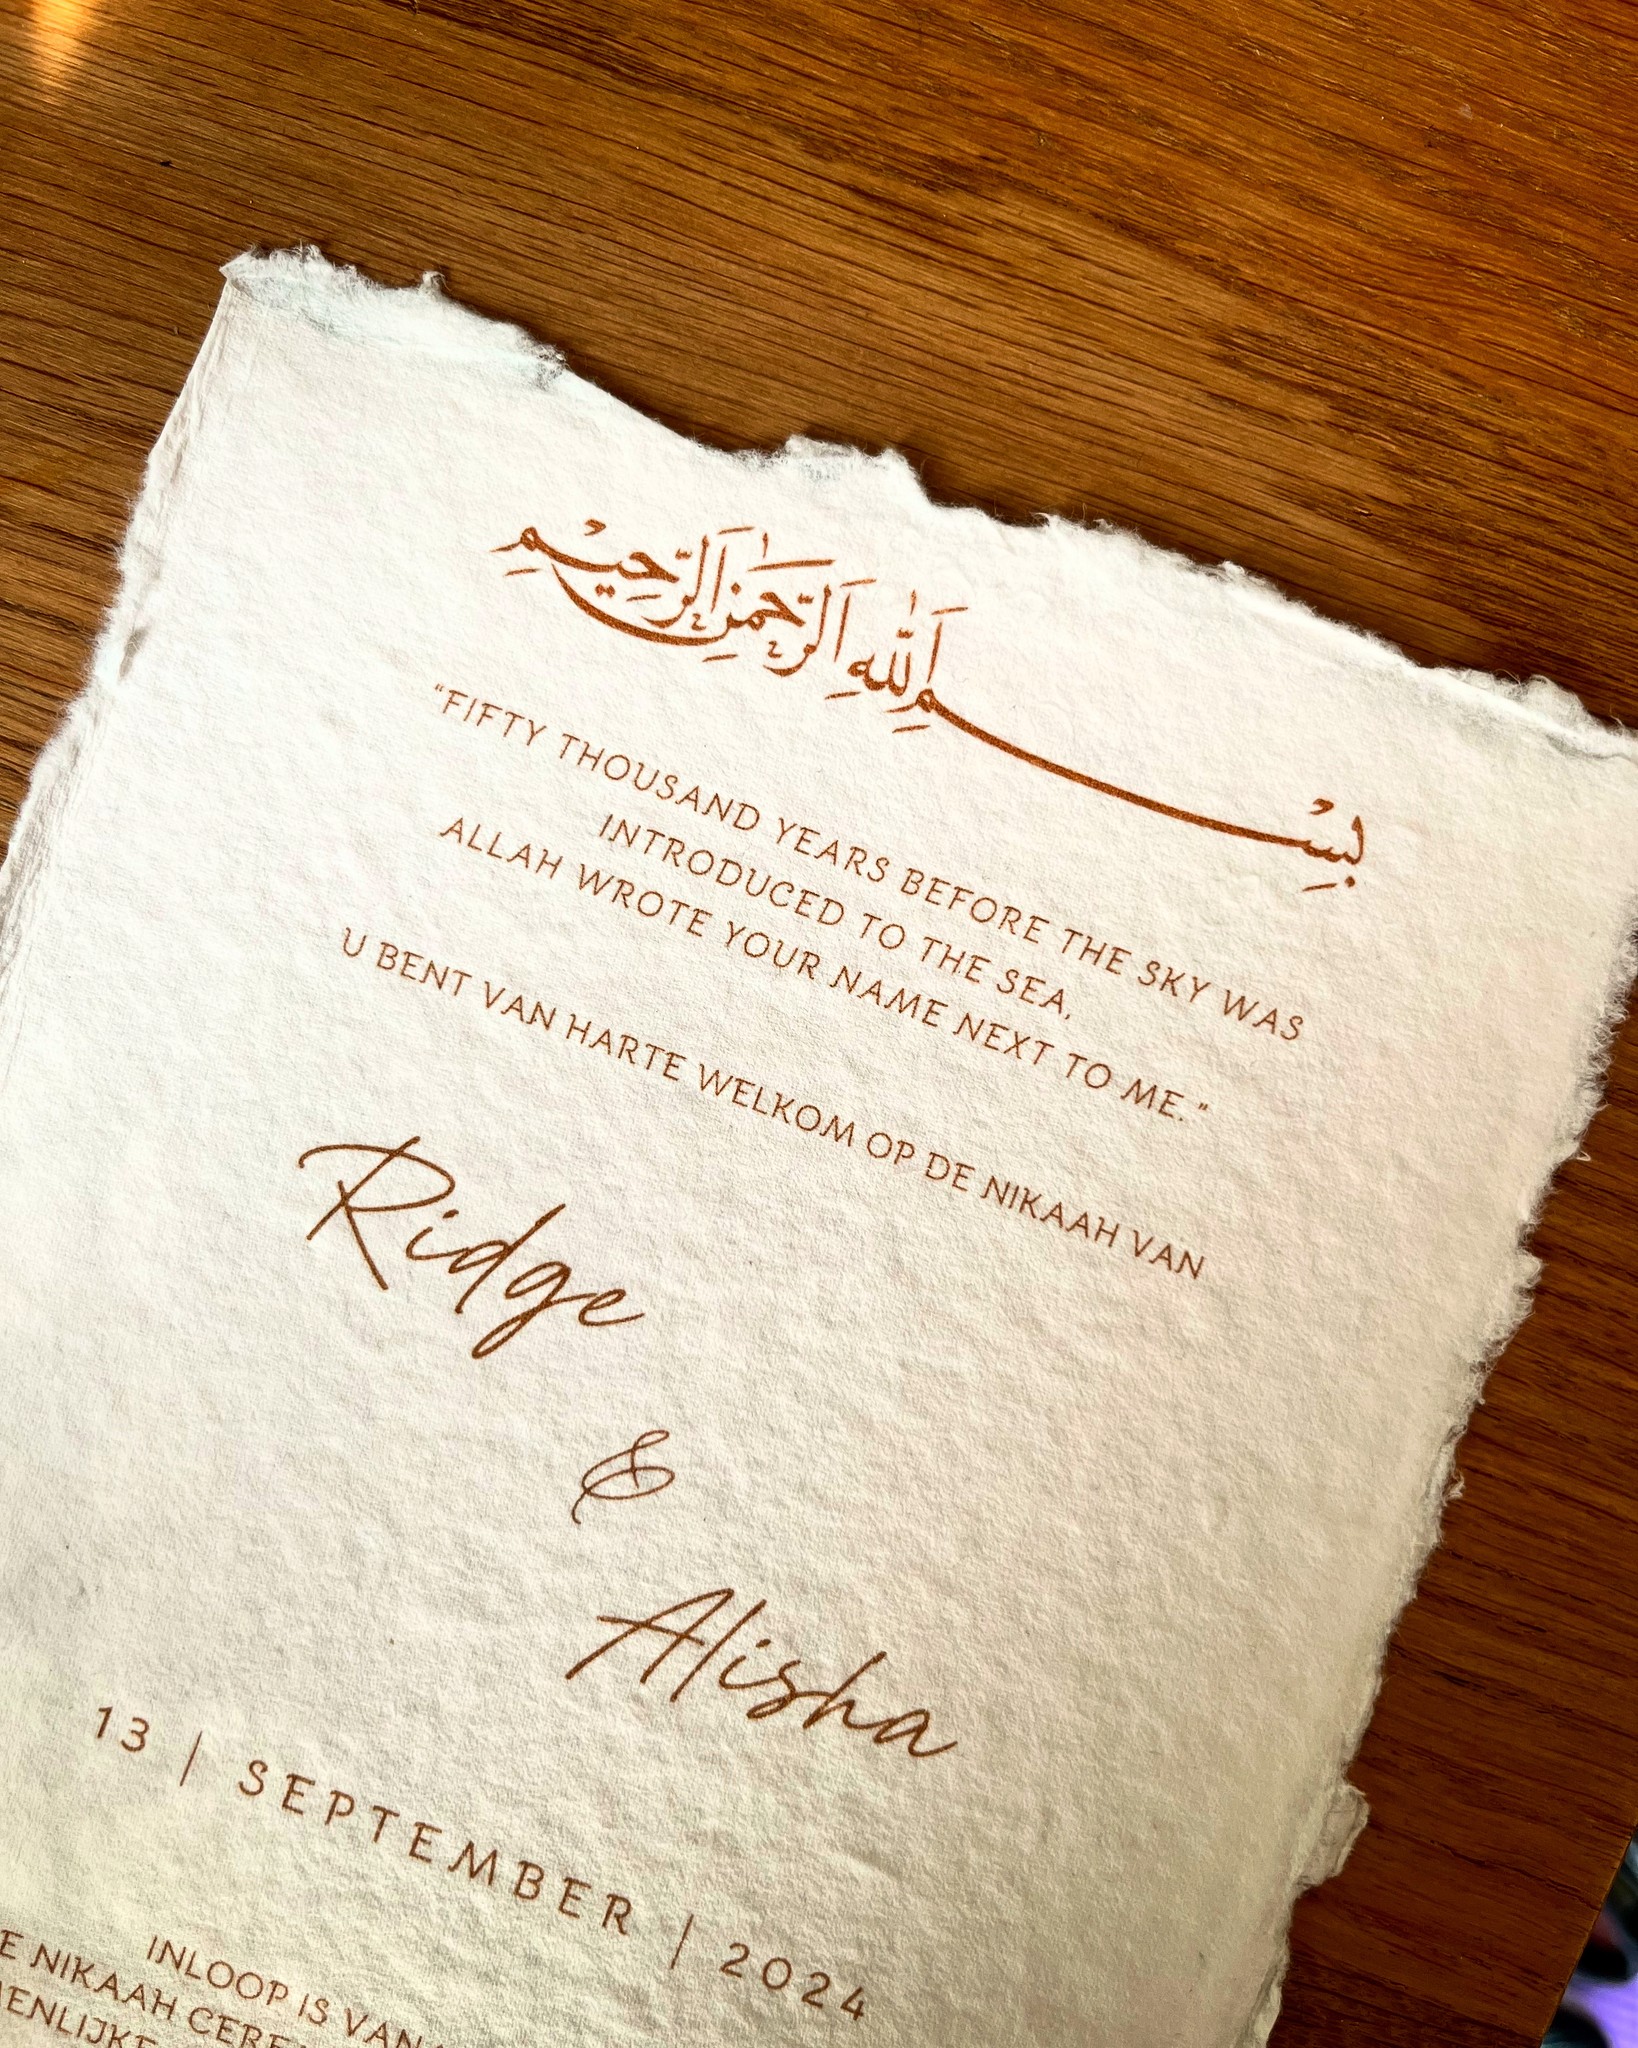 بِسْمِ اللّٰهِ الرَّحْمٰنِ الرَّحِيْمِ
“FIFTY THOUSAND YEARS BEFORE THE SKY WAS
INTRODUCED TO THE SEA,
ALLAH WROTE YOUR NAME NEXT TO ME.”
U BENT VAN HARTE WELKOM OP DE NIKAAH VAN
Ridge
&
Alisha
13 | SEPTEMBER | 2024
INLOOP IS VAN
NIKAAH